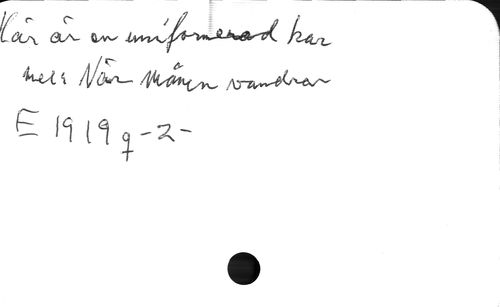 Kär är en uniformerad kar
mel: När månen vandrar
E 1919 q -2-